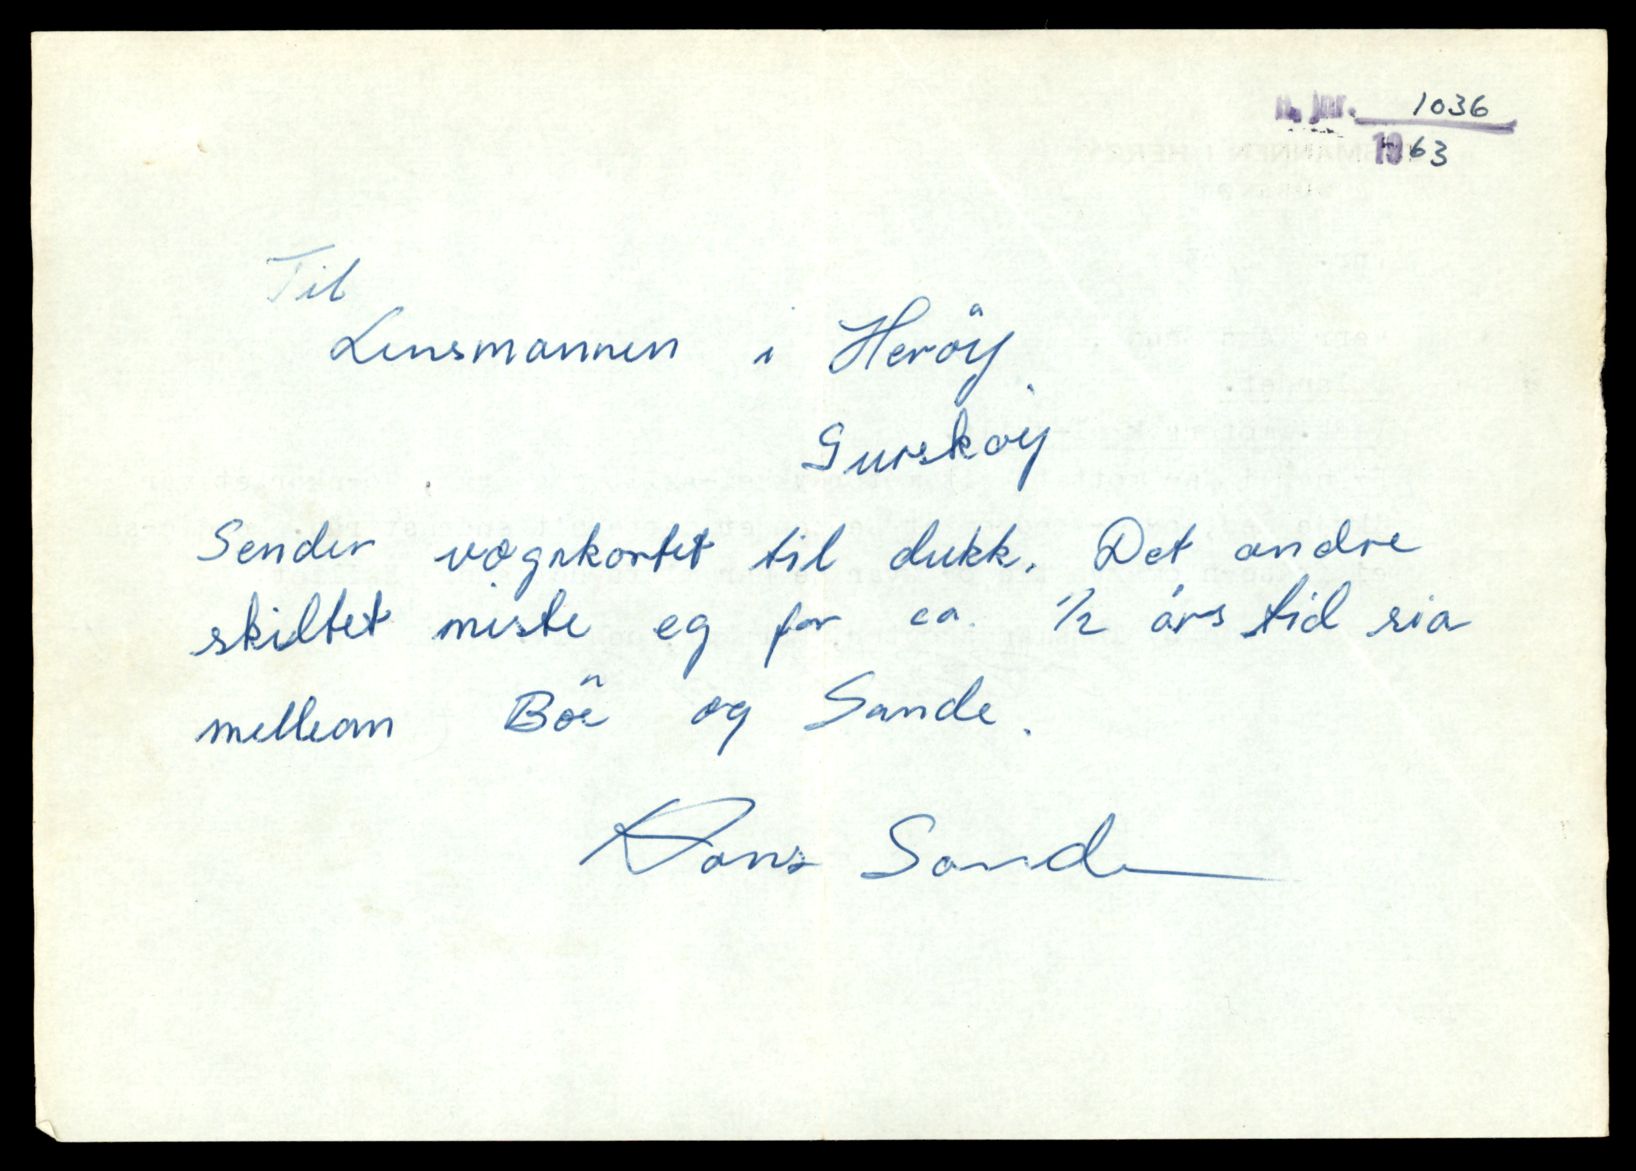 n. jnr. 1036
1963
Til
Lensmannen i Heröy
Gurskøy
Sender vognkortet til dukk. Det andre
skiltet miste eg for ca. 1/2 års tid sia
melleom Böe og Sande.
Hans Sande